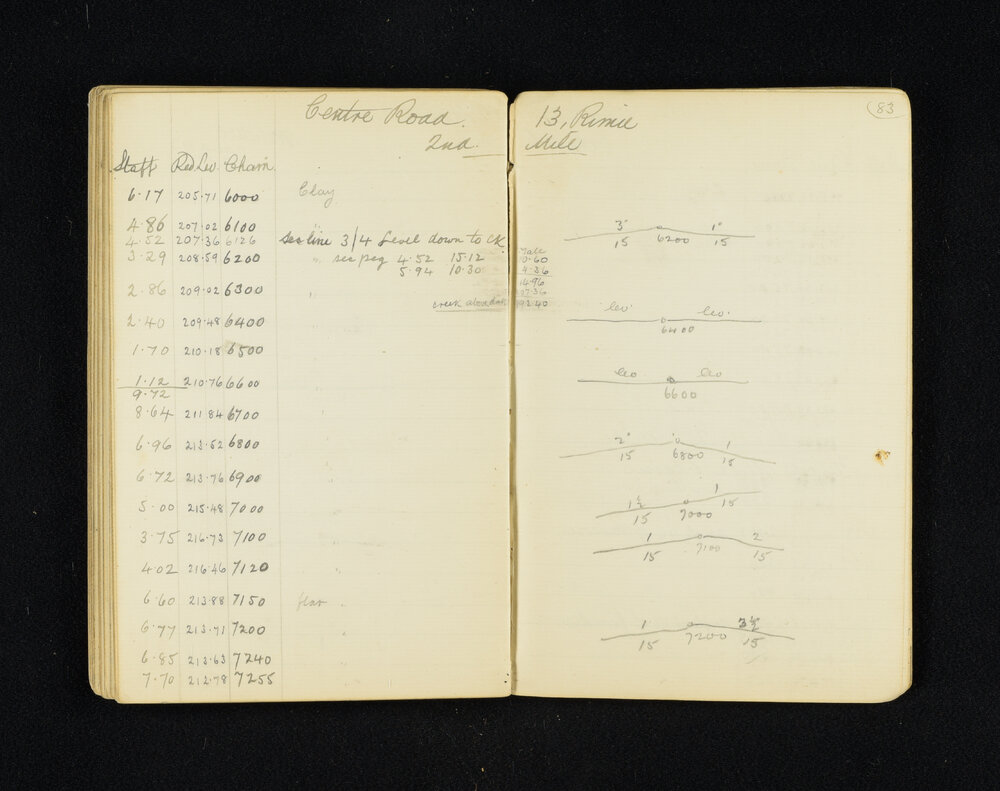 Centre Road.
2nd.
Staff Red.Lev. Chain.
6.17 205.71 6000 Clay
4.86 207.02 6100
4.52 207.36 6126 See line 3/4 Level down to CK.
3.29 208.59 6200 " see peg 4.52 15.12
5.94 10.30
2.86 209.02 6300 "
creek
2.40 209.48 6400
1.70 210.18 6500
1.12 210.76 6600
9.72
8.64 211.84 6700
6.96 213.52 6800
6.72 213.76 6900
5.00 215.48 7000
3.75 216.73 7100
4.02 216.46 7120
6.60 213.88 7150
6.77 213.71 7200
6.85 213.63 7240
7.70 212.78 7255
83
13,
Mile
10.60
4.36
14.96
207.36
192.40
3° 1°
15 6200 15
lev lev.
6400
lev lev
6600
2° 1
15 6800 15
1½ 1
15 7000 15
1 2
15 7100 15
1 3½
15 7200 15